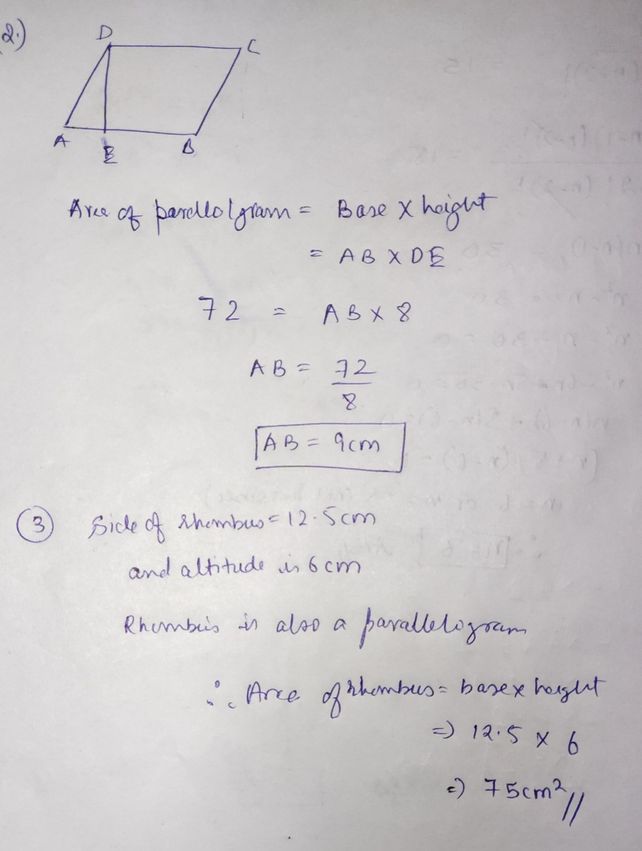 2.)
D C
A E B
Area of parellolgram = Base X height
= AB X DE
72 = AB X 8
AB = 72
8
AB = 9cm
3 Side of rhombus = 12.5cm
and altitude is 6cm
Rhombus is also a parallelogram
∴ Area of rhombus = base x height
=) 12.5 X 6
=) 75cm² //